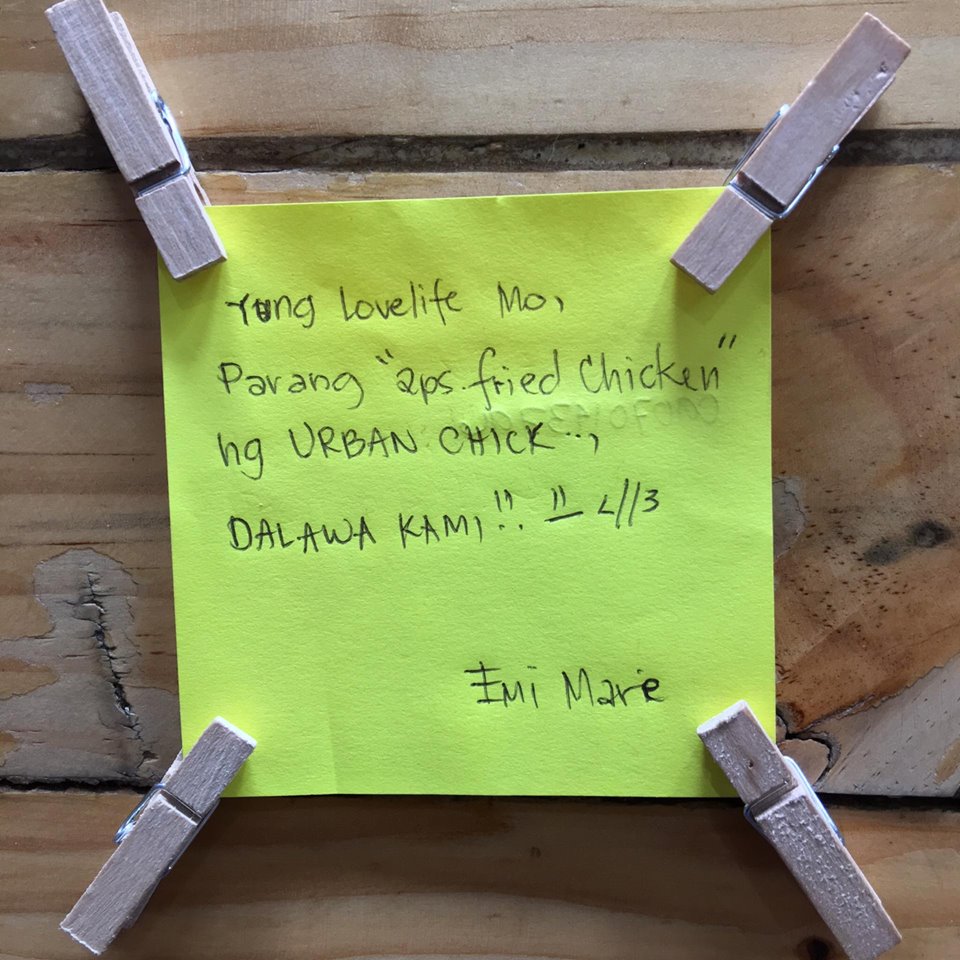 Yung Lovelife Mo,
Parang "2ps. fried Chicken"
ng URBAN CHICK...,
DALAWA KAMI!!. =) <//3
Emi Marie